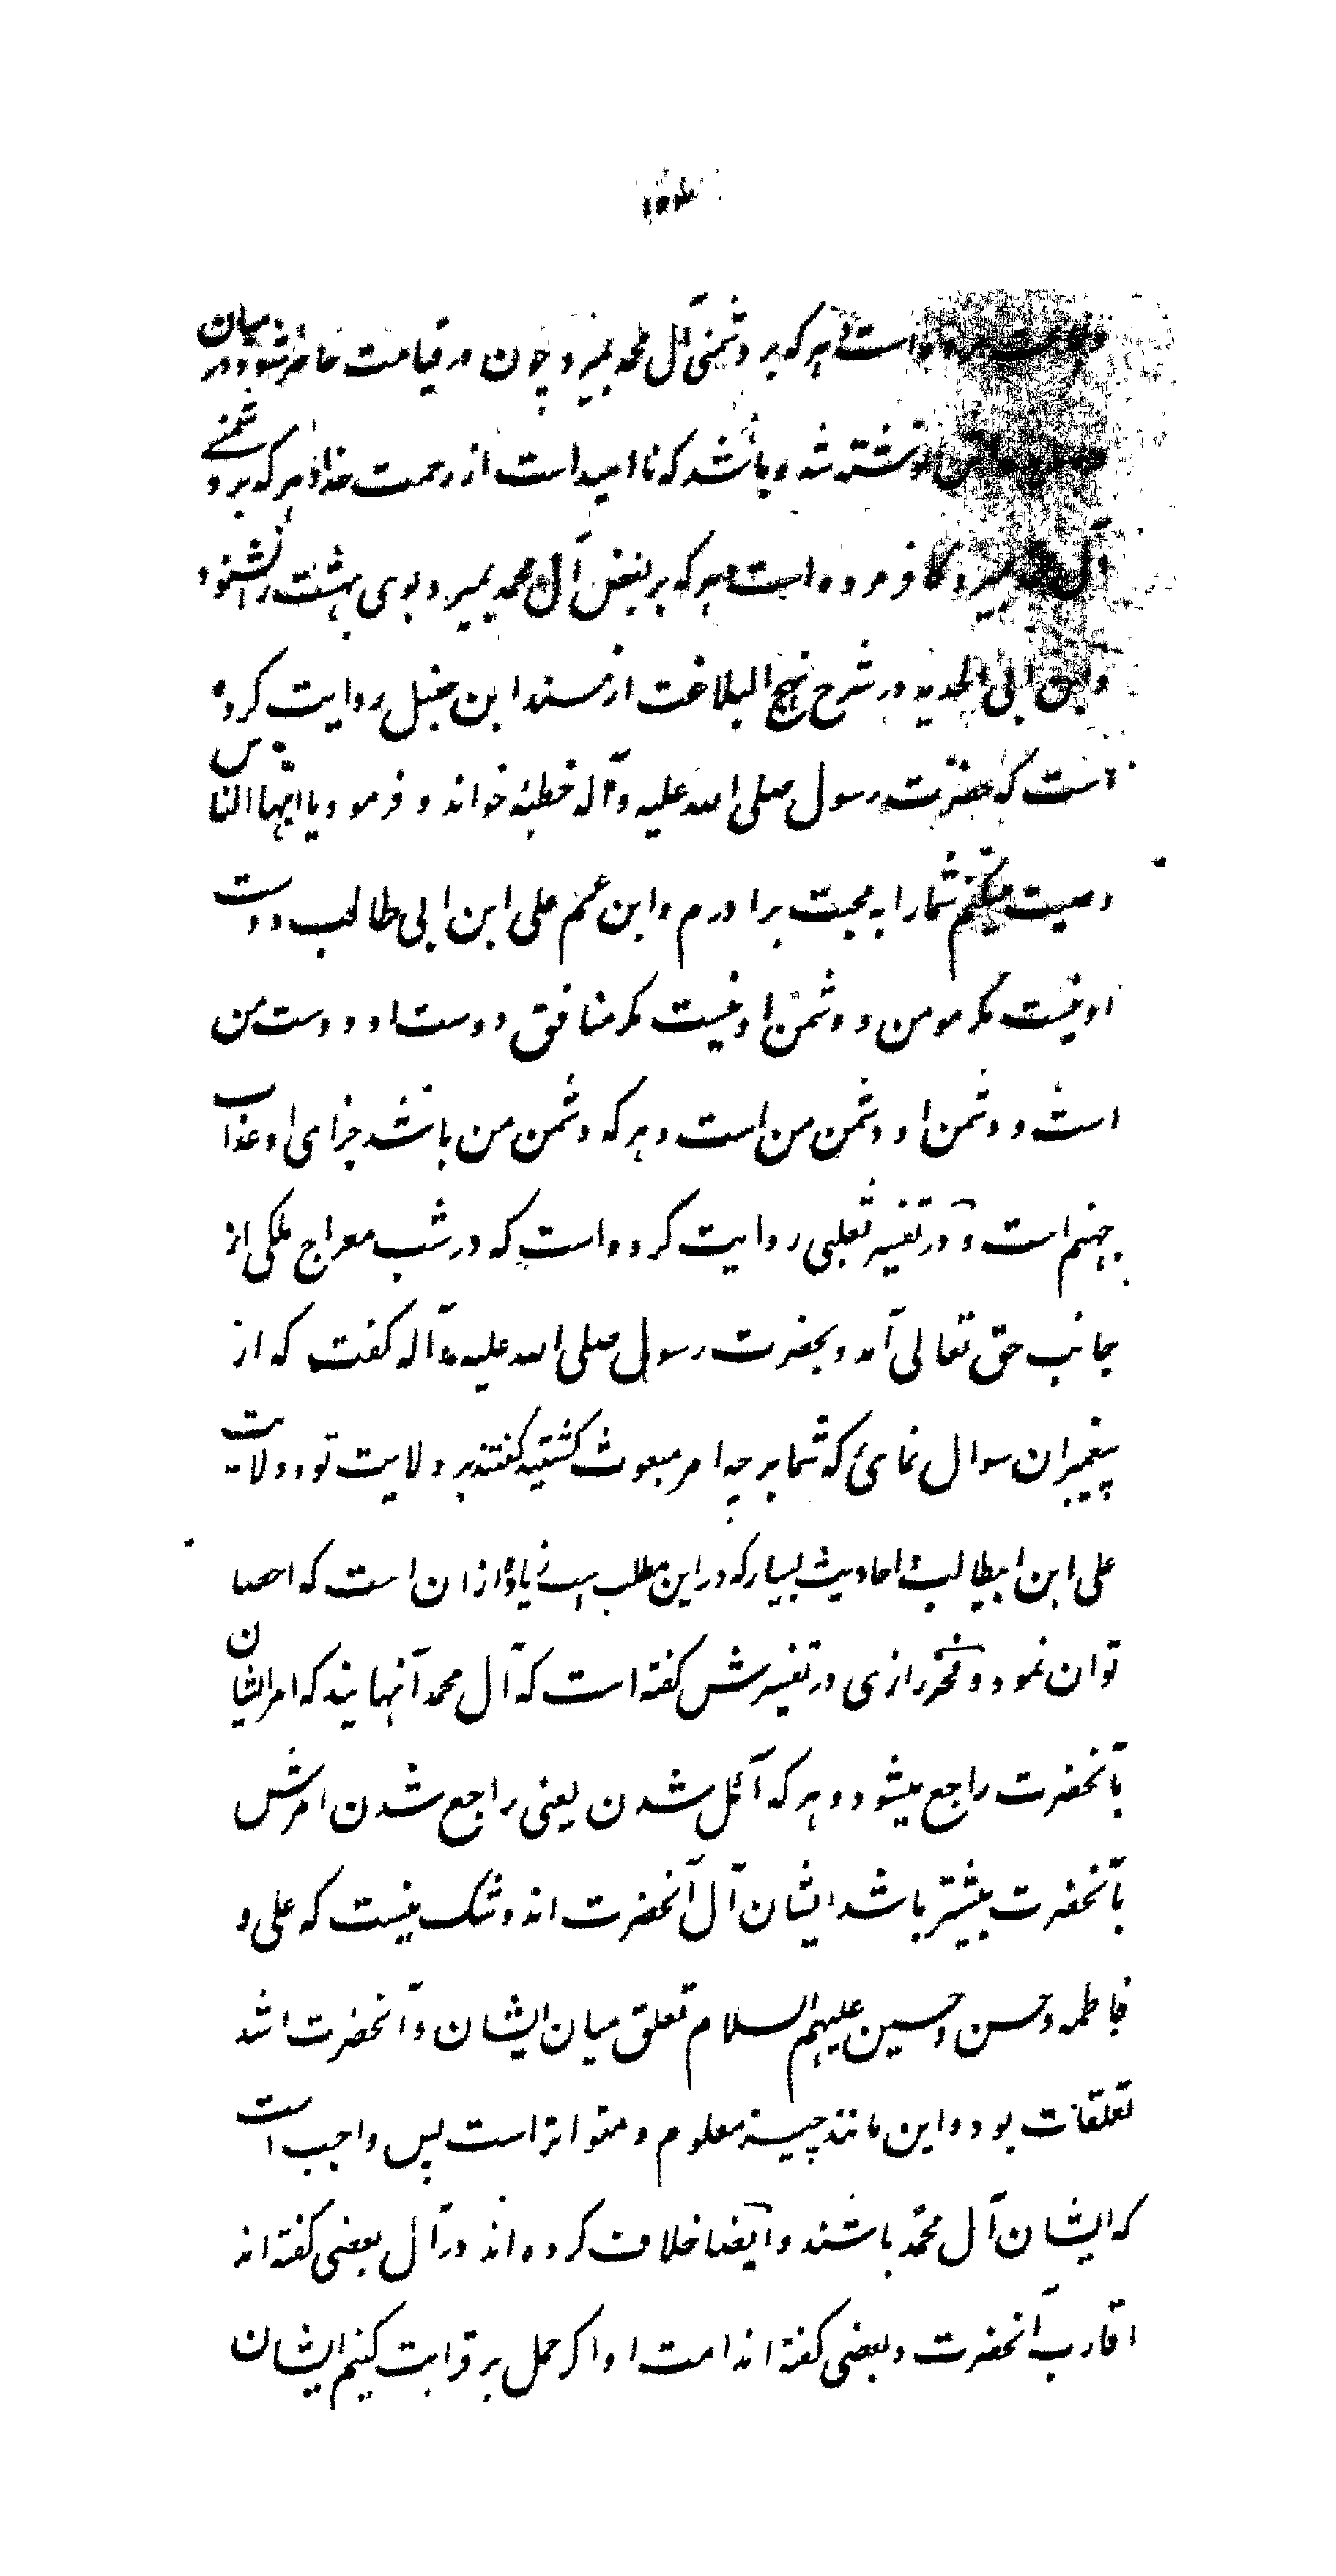 وجماعت مرده است و هر که بر دشمنی آل محمد بمیرد چون در قیامت حاضر شود در میان
دو نوشته شده باشد که نا امید است از رحمت خدا و هر که بر دشمنی
آل محمد بمیرد کافر مرده است و هر که بر بغض آل محمد بمیرد بوی بهشت را نشنود
و ابن ابی الحدید در شرح نهج البلاغت از مسند ابن حنبل روایت کرده
است که حضرت رسول صلی الله علیه و آله خطبۀ خواند و فرمود یا ایها الناس
وصیت میکنم شما را به محبت برادرم و ابن عمم علی ابن ابی طالب دوست
او نیست مگر مومن و دشمن او نیست مگر منافق دوست او دوست من
است و دشمن او دشمن من است و هر که دشمن من باشد جزای او عذاب
جهنم است و در تفسیر ثعلبی روایت کرده است که در شب معراج ملکی از
جانب حق تعالی آمد و بحضرت رسول صلی الله علیه و آله گفت که از
پیغمبران سوال نمائ که شما بر چه امر مبعوث گشتید گفتند بر ولایت تو و ولایت
علی ابن ابیطالب و احادیث بسیار که در این مطلب است زیاده از ان است که احصا
توان نمود و فخر رازی در تفسیرش گفته است که آل محمد آنهایند که امر ایشان
بآنحضرت راجع میشود و هر که آئل شدن یعنی راجع شدن امرش
بآنحضرت بیشتر باشد ایشان آل آنحضرت اند و شک نیست که علی و
فاطمه و حسن و حسین علیهم السلام تعلق میان ایشان و آنحضرت اشد
تعلقات بود و این مانند چیز معلوم و متواتر است پس واجب است
که ایشان آل محمد باشند و ایضا خلاف کرده اند در آل بعضی گفته اند
اقارب آنحضرت و بعضی گفته اند امت او اگر حمل بر قرابت کنیم ایشان